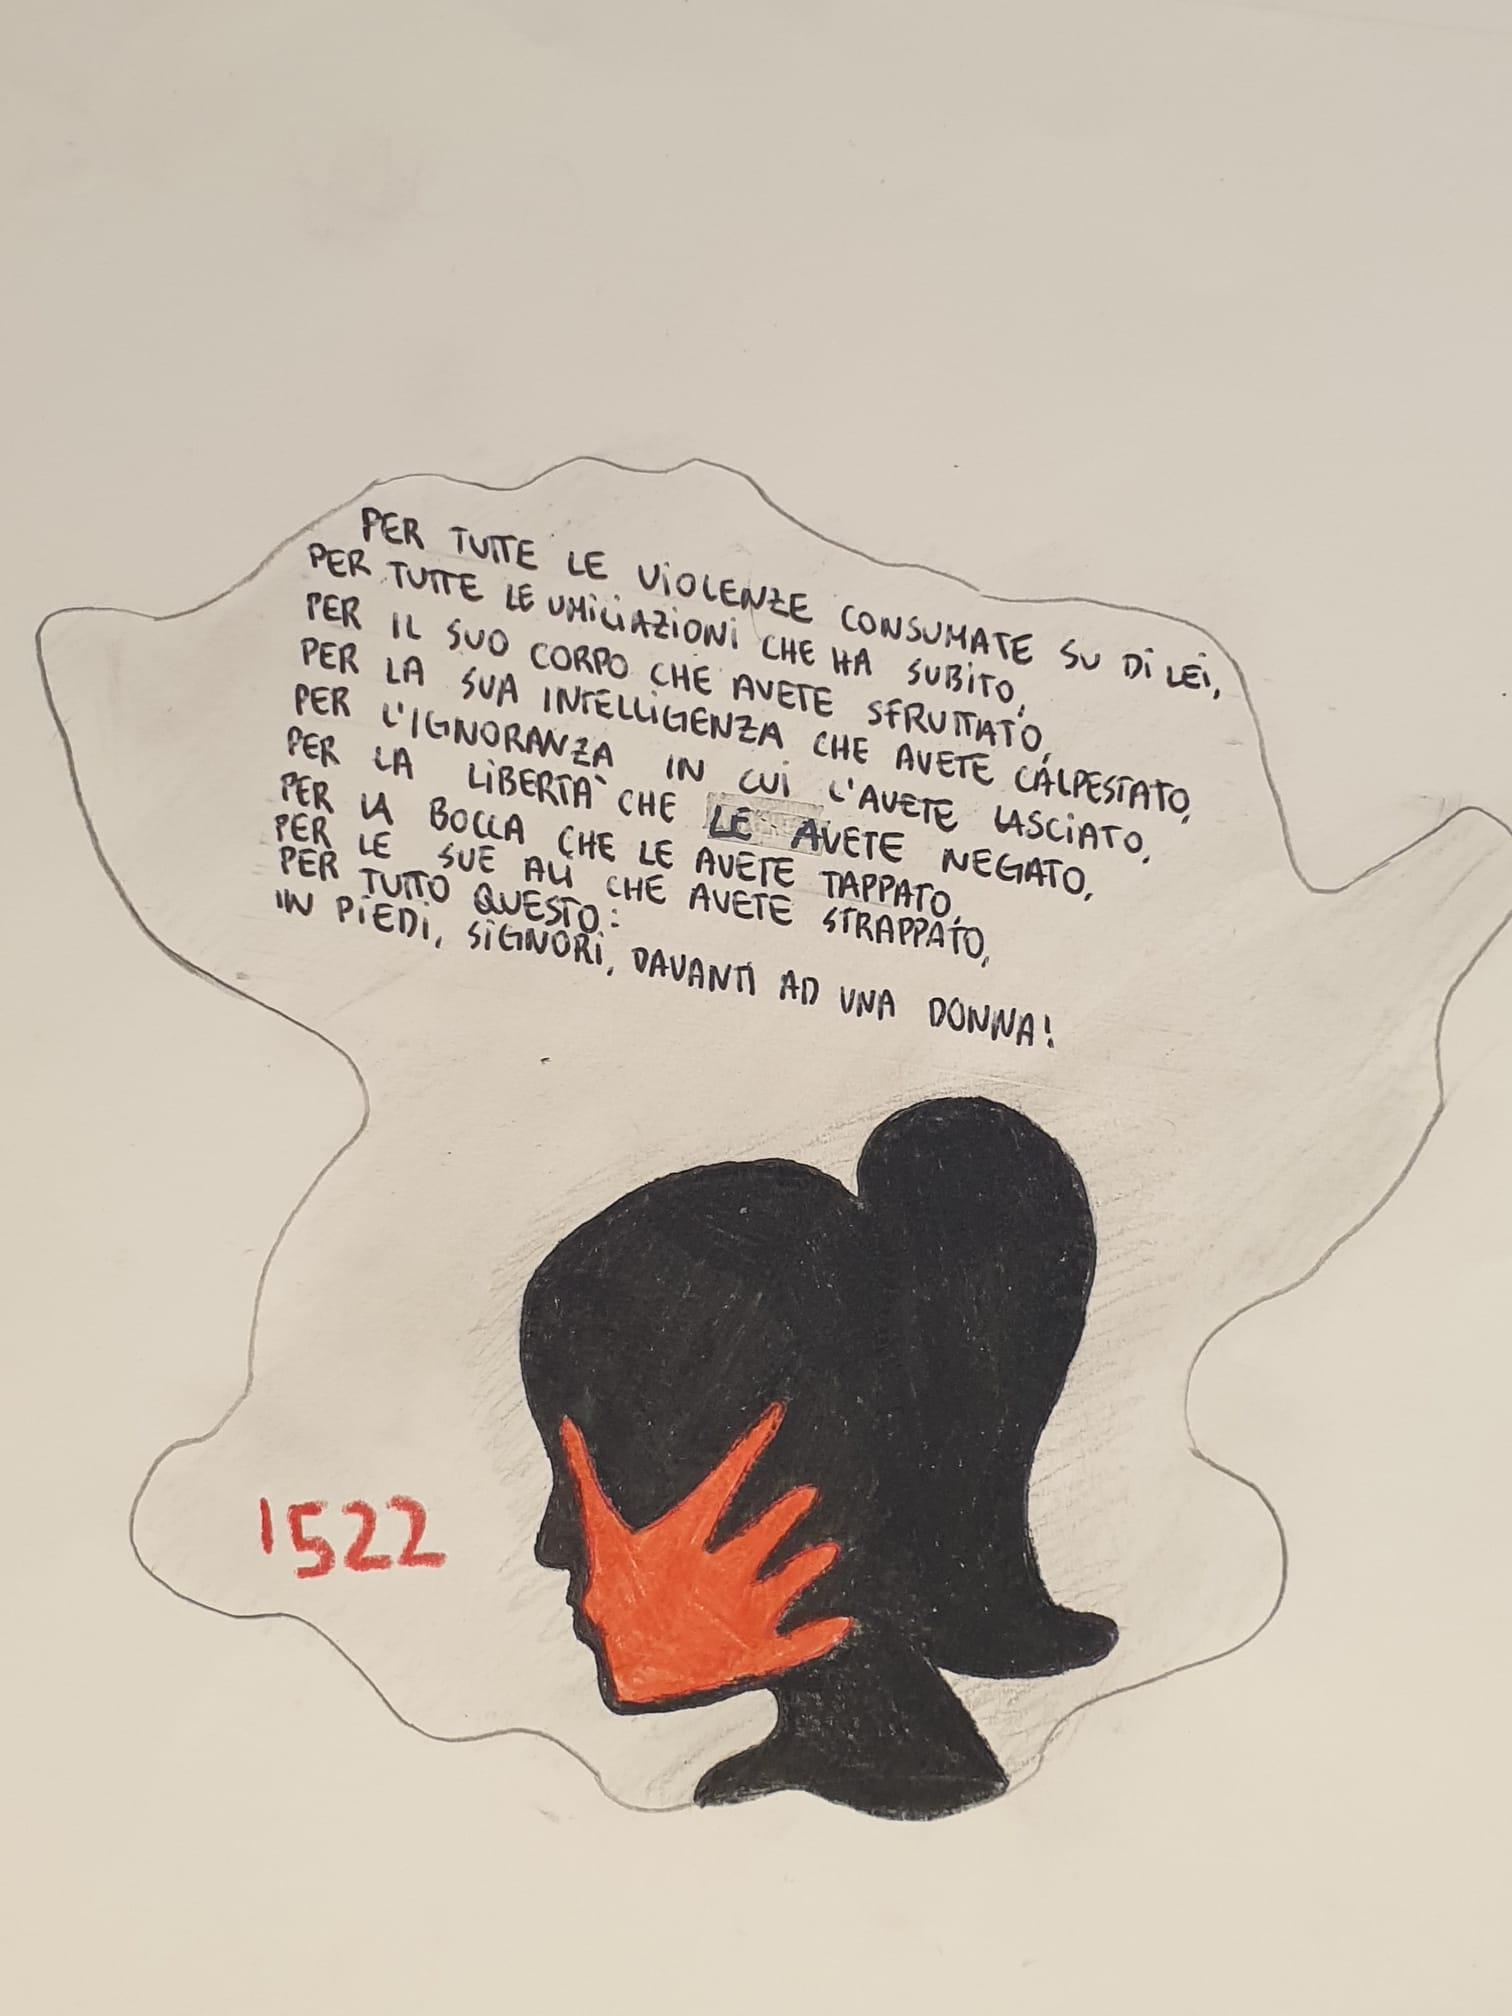 PER TUTTE LE VIOLENZE CONSUMATE SU DI LEI,
PER TUTTE LE UMILIAZIONI CHE HA SUBITO,
PER IL SUO CORPO CHE AVETE SFRUTTATO,
PER LA SUA INTELLIGENZA CHE AVETE CALPESTATO,
PER L'IGNORANZA IN CUI L'AVETE LASCIATO,
PER LA LIBERTÀ CHE LE AVETE NEGATO,
PER LA BOCCA CHE LE AVETE TAPPATO,
PER LE SUE ALI CHE AVETE STRAPPATO,
PER TUTTO QUESTO:
IN PIEDI, SIGNORI, DAVANTI AD UNA DONNA!
1522